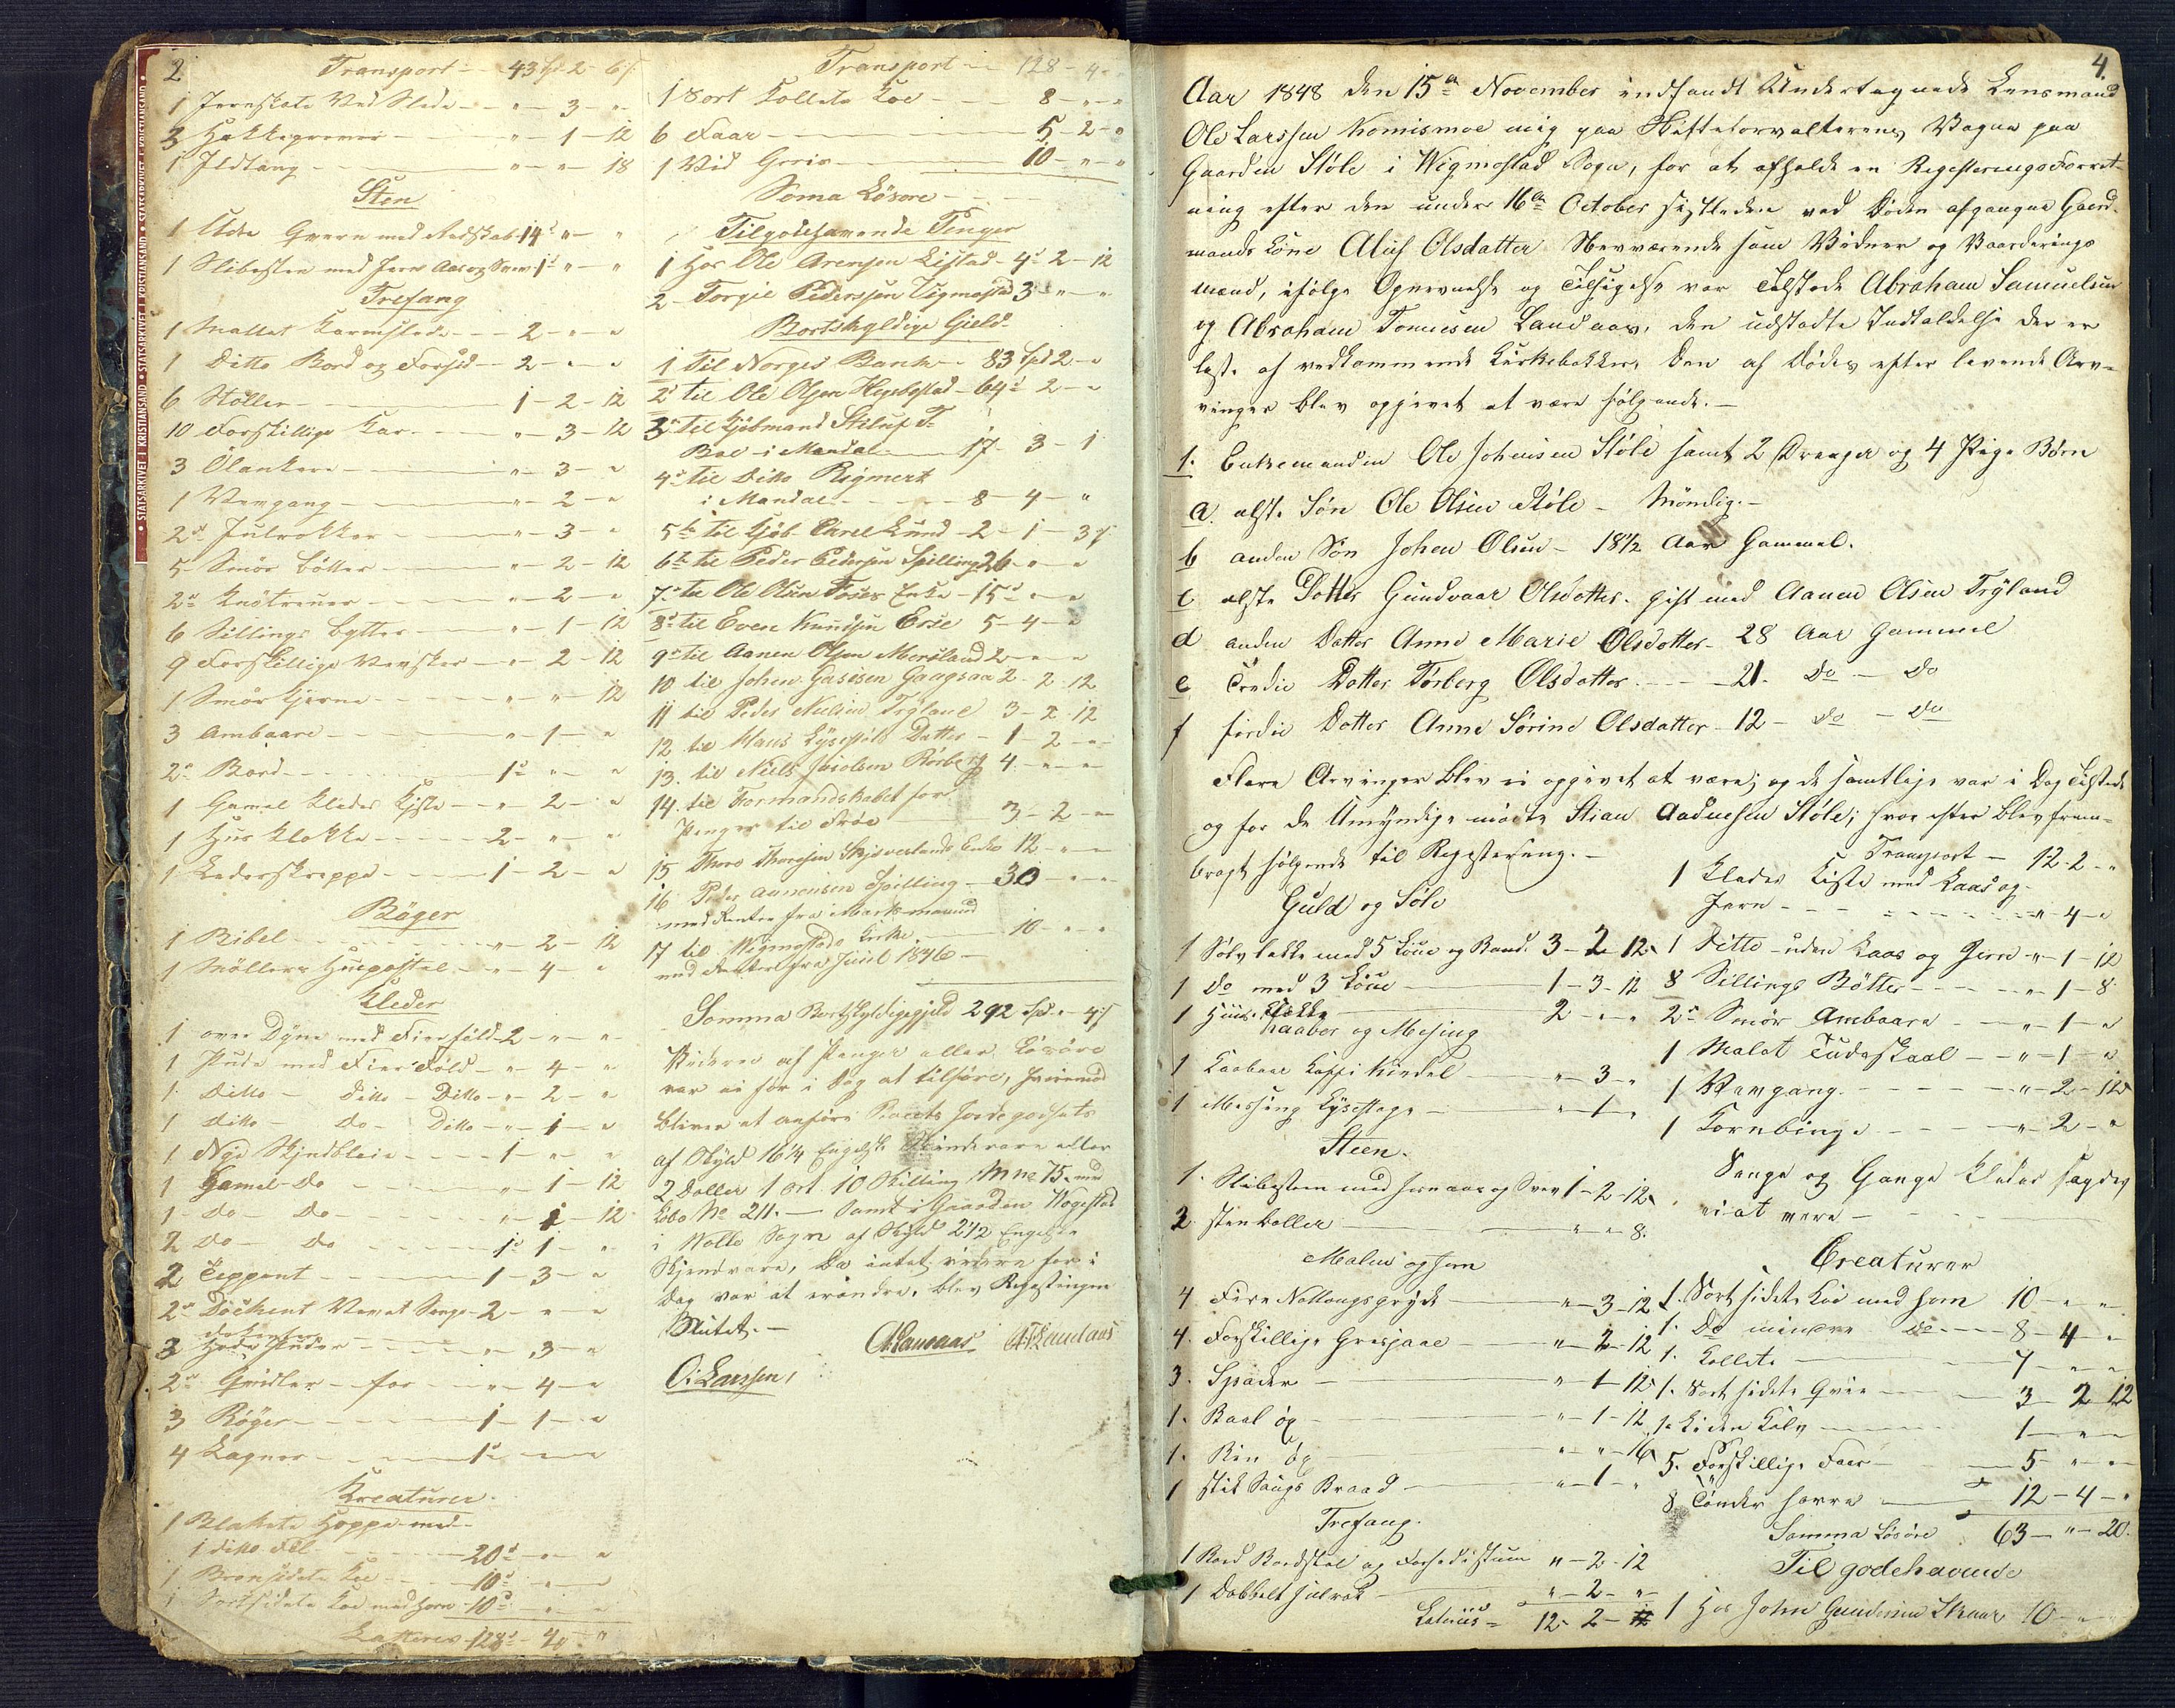 2
Transport - 43 Sp - 2 - 6 s
1 Jernskote Ved Slede - " - 3 - "
3 Hakkegreever - " - 1 - 12
1 Ildtang - " - " - 18
Sten
1 Qvern med Redskab 14 - " - "
1 Slibesten med Jern Aas og Svev 1 - " - "
Trefang
1 Mallet Karmslede - 2 - " - "
1 Ditto Bord og Forsid - 2 - " - "
6 Stoller - 1 - 2 - 12
10 Forskillige Kar - " - 3 - 12
3 Ölankere - " - 3 - "
1 Vevgang - " - 2 - "
2 Julrokker - " - 3 - "
5 Smör bötter - " - 2 - 12
2 - " - 2 - "
6 Sillings bytter - " - 1 - 12
9 Forskillige - " - 2 - 12
1 Smör Kjerne - " - " - 12
3 Ambaare - " - 1 - "
2 Bord - 1 - " - "
1 Gamel Kleder Kiste - " - 2 - "
1 Hus Klokke - 2 - " - "
1 Lederskreppe - 1 - 2 - "
Böger
1 Bibel - " - 2 - 12
1 Möllers Huspostel - " - 4 - "
Kleder
1 over Dyne med Fierföld - 2 - " - "
1 Pude med Fier Föld - " - 4 - "
1 Ditto - Ditto - Ditto - " - 2 - "
1 ditto - do - Ditto - " - 1 - "
1 Nye Skjndbleie - 1 - " - "
1 Gamel do - " - 1 - 12
1 - Do - Do - " - 1 - 12
2 Do - Do - 1 - 1 - "
2 Teppent - 1 - 3 - "
2 Döckent Senge - 2 - " - "
3 Hode Puder - " - 3 - "
2 Gridler - for - " - 4 - "
3 Böger - 1 - 1 - "
4 Lagner - 1 - " - "
Kreaturer
1 Blakete Hoppe med
1 ditto Föl - 20 - " - "
1 Bronsidete Koe - 10 - " - "
1 Sortsidete Koe med Horn - 10 - " - "
Latteres 128 - 4 - "
Transport - 128 - 4 - "
1 Sort Kollete Koe - 8 - " - "
6 Faar - 5 - 2 - "
1 Vid Griis - 10 - " - "
Soma Lösöre
Tilgodehavende Penger
1 Hos Ole Arensen Listad - 4 - 2 - 12
2 - Torgie Pedersen Vigmostad 3 - " - "
Bortskyldige Gjeld
1 Til Norges Bank - 83 Spd 2 - "
2 til Ole Olsen Hegbostad - 64 - 2 - "
3 til Kjöbmand Stiluf T.
Boe i Mandal - 17 - 3 - 1
4 til Ditto Rigmert
i Mandal - 8 - 4 - "
5te til Kjöb. Carel Lund - 2 - 1 - 3 s
6te til Peder Pedersen Spilling 26 - " - "
7 til Ole Olsen Foss Enke - 15 - " - "
8 til Even Knudsen Eiee 5 - 4 - "
9 til Aanen Olsen Morsland 2 - " - "
10 til Johen Gaasesen Gaagsaa 2 - 2 - 12
11 til Peder Nielsen Tryland 3 - 2 - 12
12 til Klaus Lysestöls Datter - 1 - 2 - "
13. til Niels Jacobsen Rörberg 4 - " - "
14. til Formandskabet for
Penger til Fröe 3 - 2 - "
15 Thore Thoresen Skjeveslands Enke 12 - " - "
16 Peder Aanensen Spilling - 30 - " - "
med Renter fra
17 til Wigmostads Kirke - 10 - " - "
med Renter fra Juul 1846 -
Somma Bortskyldigegjeld 292 Spd - " - 4 s
Videre af Penger eller Lösöre
var ei for i Dag at tilföre, hvorimod
bliver at anföre Boets Jordegodsets
af Skyld 16 1/4 Engelsk eller
2 Daller 1 ort 10 Skilling Mne 75. med
Löbe No 211. - Samt i Gaarden Vogstad
i Nolle Sogn af Skyld 2 1/2 Engelske
Skjendvare, Da intet videre for i
Dag var at erindre, blev Registeringen
Slutet. -
A. Landaas A. T. Landaas
O: Larssen,
4.
Aar 1848 den 15de November indfandt Undertegnede Lensmand
Ole Larssen Homismoe mig paa Skifteforvalterens Vegne paa
Gaarden Støle i Wigmostad Sogn, for at afholde en Registeringsforret-
ning efter den under 16de October sistleden ved Döden afgangne Gaard-
mands Köne Aluf Olsdatter Nerværende som Vidner og Vaarderings
mend, ifölge Opnevnelse og Tilsigelse var Tilstede Abraham Samuelsen
og Abraham Tomesen Landaas, den udstedte Indkaldelse der er
lest af vedkommende Kirkebakker, Den af Dödes efter levende Arv-
inger blev opgivet at være fölgende. -
1. Enkemanden Ole Johensen Støle samt 2 Drenger og 4 Pige Børn
a. elste Søn Ole Olsen Støle - Möndig. -
b anden Søn Johen Olsen - 18 1/2 Aar Gammel.
c elste Dotter Gundvaar Olsdotter. gift med Aanen Olsen Tryland
d anden Datter Anne Marie Olsdotter - 28 Aar Gammel
e Tredie Dotter Torberg Olsdotter - 21. Do - Do
f fierdie Dotter Anne Sørine Olsdotter - 12 - Do - Do
Flere Arvinger blev ei opgivet at være; og de samtlige var i Dag Tilstede
og for de Umyndige mödte Stian Aadnesen Støle; hvor efter blev frem-
bragt fölgende til Registering. -
Guld og Sölv
1 Sölvlakke med 5 Löve og Band. 3 - 2 - 12
1 Do med 3 Löve - 1 - 3 - 12
1 Huus Klokke 2 - " - "
Kaaber og Mesing
1 Kaabere Kaffi Kiedel - " - 3 - "
1 Messing Lysestage - " - 1 - "
Steen.
1. Slibesteen med Jern aas og Svev 1 - 2 - 12
2 stenboller - " - " - 8.
Malm og Jern
4 Fire Nattongsgryde - " - 3 - 12
4. Forskillige Gresjaae - " - 2 - 12
3. Spader - " - 1 - 12
1. Baal öx - " - 1 - 12
1. Bin öx - " - " - 16
1 stik Saugs Braad - " - 1 - "
Trefang.
1 Bord Bordstol og Forsedistum " - 2 - 12
1 Dobbelt Julrok - " - 2 - "
Lateriis - 12 - 2 - "
Transport - 12 - 2 - "
1 Kleder Kiste med Laas og
Jern - " - 4 - "
1 Ditto uden Laas og Jern " - 1 - 12
8 Sillings Bötter - " - 1 - 8
2 Smör Ambaare - " - 1 - "
1 Malet Tudeskaal - " - 1 - "
1 Vevgang. - " - 2 - 12
1 Kornbinge - " - 2 - "
Senge og Gange Kleder sagdes
ei at være
Creaturer
1. Sort sidete Koe med horn 10 - " - "
1. Do mindre Do - 8 - 4 - "
1. Kollete - 7 - " - "
1. Sort sidete Qvie - 3 - 2 - 12
1. Liden Kalv - 1 - " - "
5. Forskillige Faar - 5 - " - "
8 Tönder havre 12 - 4 - "
Somma Lösöre 63 - " - 20.
Til godehavende
1 Hos John Gundersen Skaar 10 - " - "
• STATSARKIVET I KRISTIANSAND • STATSARKIVET I KRISTIANSAND • STATSARKIVET I KRISTIANSAND •